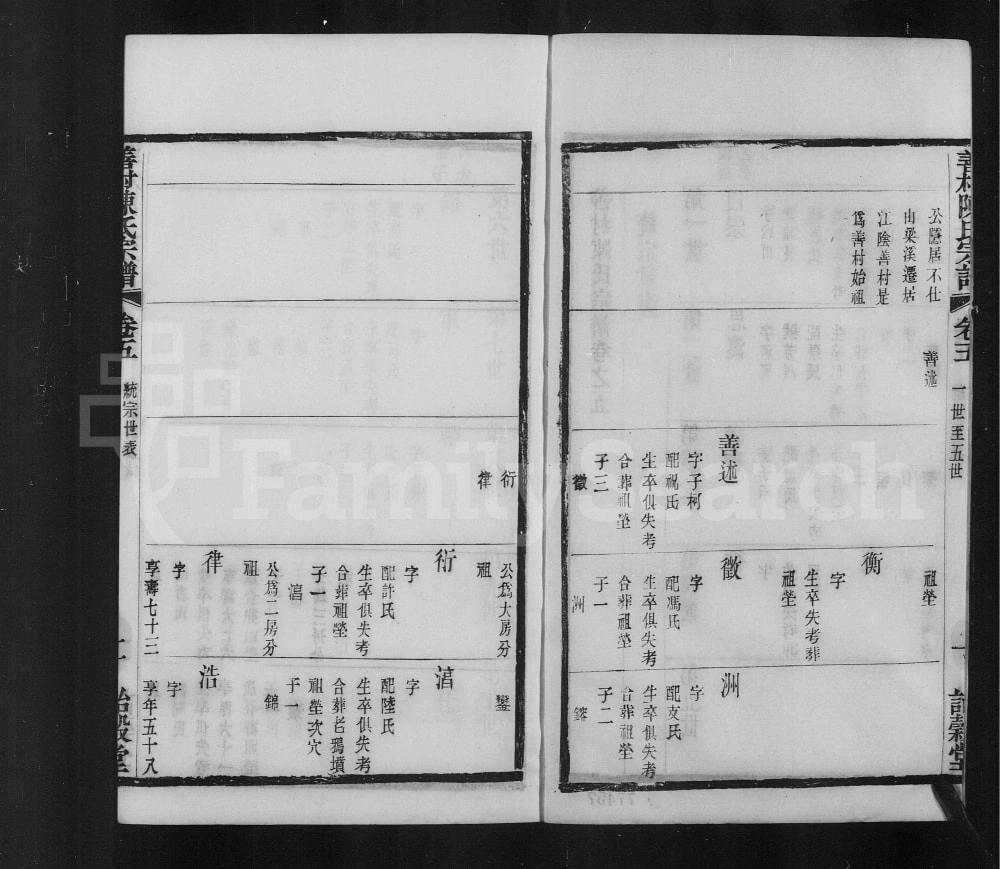 善村陳氏宗譜
卷五
一世至五世
詒穀堂
公隱居不仕
由梁溪遷居
江陰善村是
爲善村始祖
善述
善述
字子柯
配祝氏
生卒俱失考
合葬祖塋
子三
徵
祖塋
衡
字
生卒失考葬
祖塋
徵
字
配馮氏
生卒俱失考
合葬祖塋
子一
洲
洲
字
配支氏
生卒俱失考
合葬祖塋
子二
鎔
鑾
衍
律
公爲大房分
祖
衍
字
配許氏
生卒俱失考
合葬祖塋
子一
湻
公爲二房分
祖
律
字
享壽七十三
湻
字
配陸氏
生卒俱失考
合葬老鴉墳
祖塋次穴
子一
錦
浩
字
享年五十八
善村陳氏宗譜
卷五
統宗世表
二
詒穀堂
FamilySearch